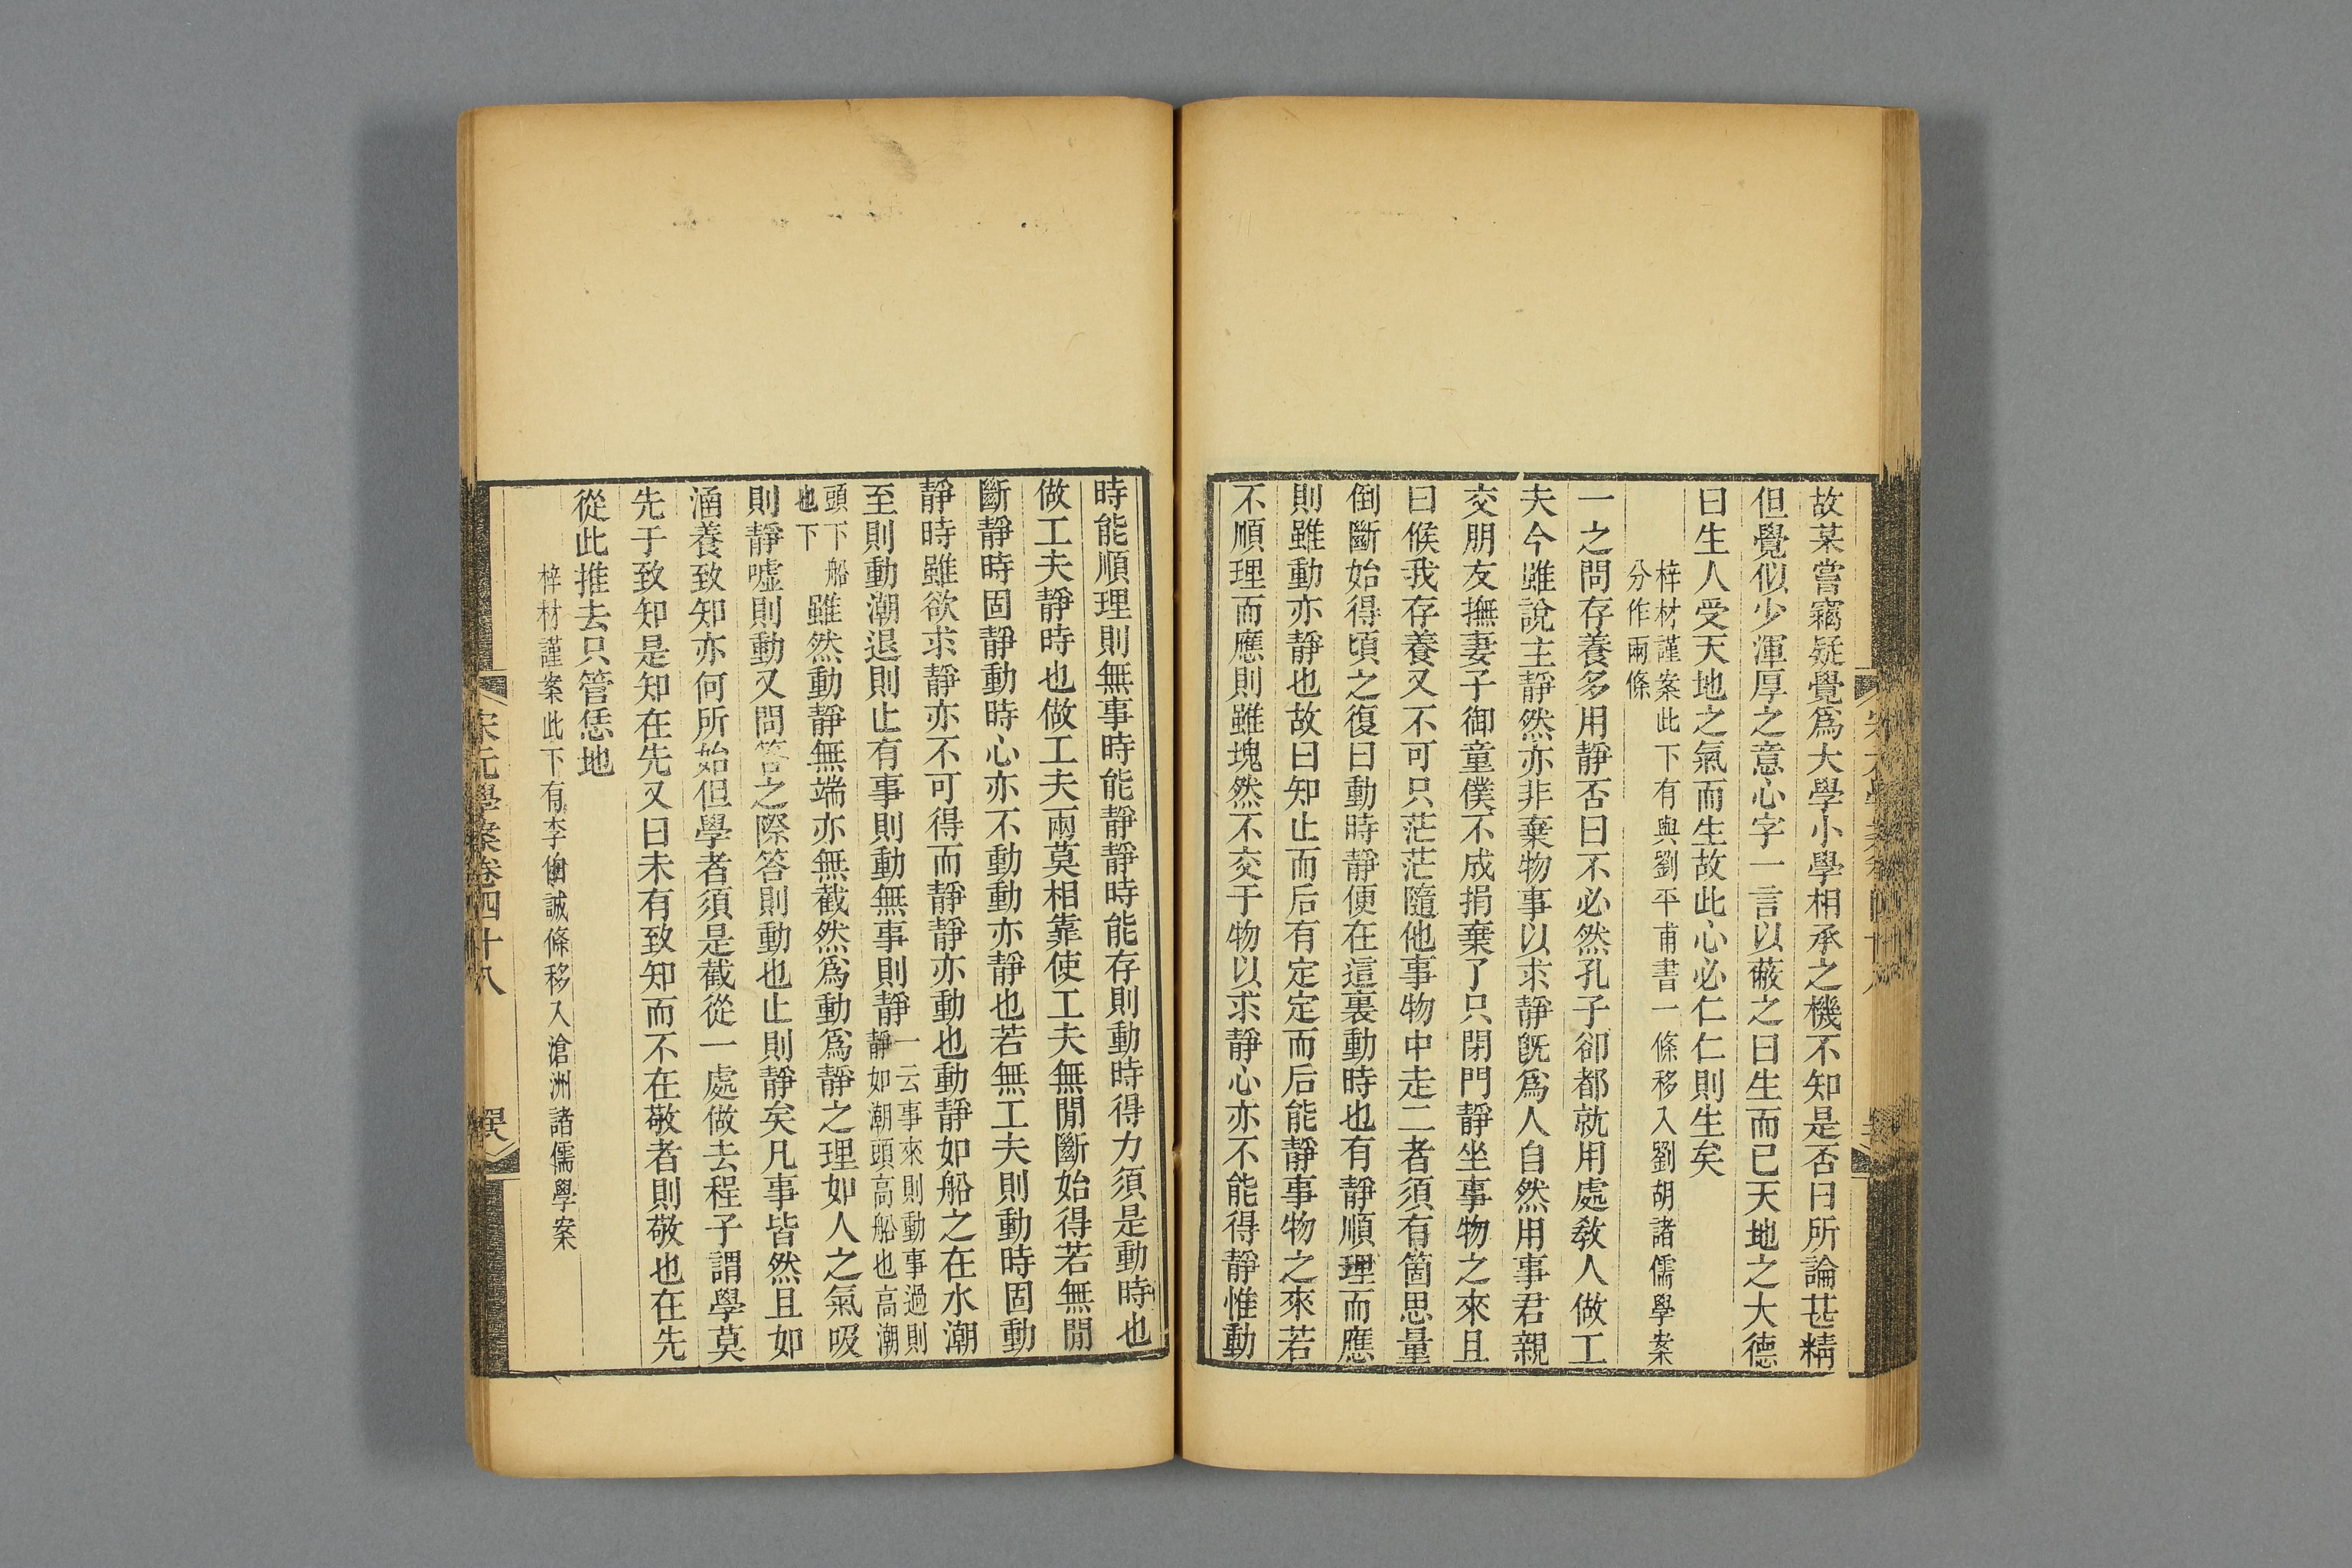 故某嘗竊疑覺爲大學小學相承之機不知是否曰所論甚精
但覺似少渾厚之意心字一言以蔽之曰生而已天地之大德
曰生人受天地之氣而生故此心必仁仁則生矣
梓材謹案此下有與劉平甫書一條移入劉胡諸儒學案
分作兩條
一之問存養多用靜否曰不必然孔子卻都就用處敎人做工
夫今雖說主靜然亦非棄物事以求靜旣爲人自然用事君親
交朋友撫妻子御童僕不成捐棄了只閉門靜坐事物之來且
曰候我存養又不可只茫茫隨他事物中走二者須有箇思量
倒斷始得頃之復曰動時靜便在這裏動時也有靜順理而應
則雖動亦靜也故曰知止而后有定定而后能靜事物之來若
不順理而應則雖塊然不交于物以求靜心亦不能得靜惟動
時能順理則無事時能靜靜時能存則動時得力須是動時也
做工夫靜時也做工夫兩莫相靠使工夫無閒斷始得若無閒
斷靜時固靜動時心亦不動動亦靜也若無工夫則動時固動
靜時雖欲求靜亦不可得而靜靜亦動也動靜如船之在水潮
至則動潮退則止有事則動無事則靜
一云事來則動事過則
靜如潮頭高船也高潮
頭下船
也下
雖然動靜無端亦無截然爲動爲靜之理如人之氣吸
則靜噓則動又問答之際答則動也止則靜矣凡事皆然且如
涵養致知亦何所始但學者須是截從一處做去程子謂學莫
先于致知是知在先又曰未有致知而不在敬者則敬也在先
從此推去只管恁地
梓材謹案此下有李伯誠條移入滄洲諸儒學案
宋元學案卷四十八